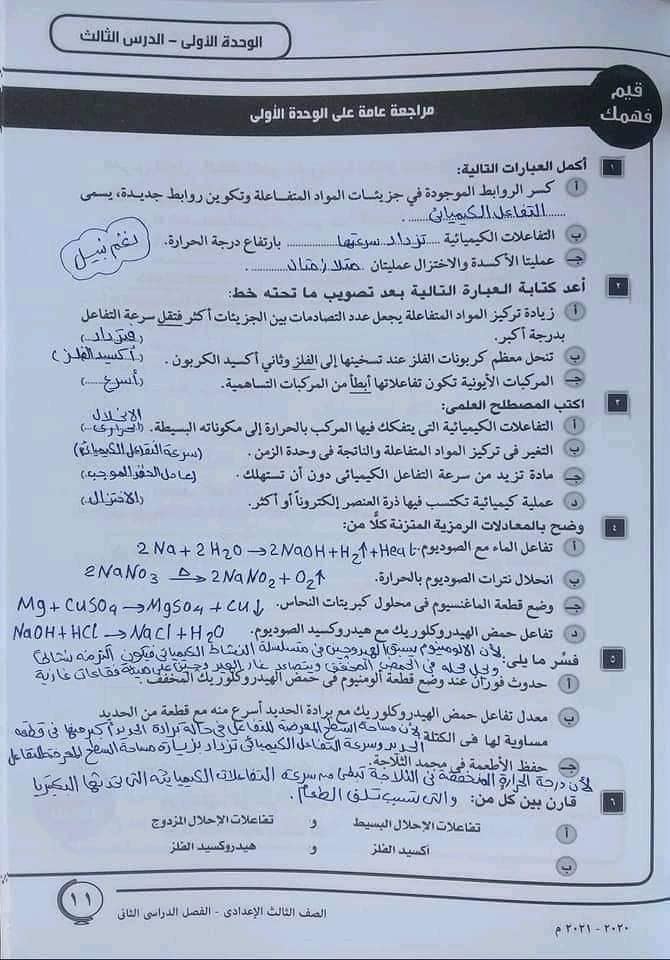 الوحدة الأولى - الدرس الثالث
قيم فهمك
مراجعة عامة على الوحدة الأولى
١ أكمل العبارات التالية:
أ كسر الروابط الموجودة في جزيئات المواد المتفاعلة وتكوين روابط جديدة، يسمى
التفاعل الكيميائي
ب التفاعلات الكيميائية تزداد سرعتها بارتفاع درجة الحرارة.
جـ عمليتا الأكسدة والاختزال عمليتان متلازمتان.
نغم نبيل
٢ أعد كتابة العبارة التالية بعد تصويب ما تحته خط:
أ زيادة تركيز المواد المتفاعلة يجعل عدد التصادمات بين الجزيئات أكثر فتقل سرعة التفاعل
بدرجة أكبر. (فتزداد)
ب تنحل معظم كربونات الفلز عند تسخينها إلى الفلز وثاني أكسيد الكربون. (أكسيد الفلز)
جـ المركبات الأيونية تكون تفاعلاتها أبطأ من المركبات التساهمية. (أسرع)
٣ اكتب المصطلح العلمى:
أ التفاعلات الكيميائية التى يتفكك فيها المركب بالحرارة إلى مكوناته البسيطة. (الانحلال الحرارى)
ب التغير فى تركيز المواد المتفاعلة والناتجة فى وحدة الزمن. (سرعة التفاعل الكيميائي)
جـ مادة تزيد من سرعة التفاعل الكيميائى دون أن تستهلك. (عامل الحفز الموجب)
د عملية كيميائية تكتسب فيها ذرة العنصر إلكتروناً أو أكثر. (الاختزال)
٤ وضح بالمعادلات الرمزية المتزنة كلًا من:
أ تفاعل الماء مع الصوديوم. 2Na + 2H₂O → 2NaOH + H₂↑ + Heat
ب انحلال نترات الصوديوم بالحرارة. 2NaNO₃ △→ 2NaNO₂ + O₂↑
جـ وضع قطعة الماغنسيوم فى محلول كبريتات النحاس. Mg + CuSO₄ → MgSO₄ + Cu↓
د تفاعل حمض الهيدروكلوريك مع هيدروكسيد الصوديوم. NaOH + HCl → NaCl + H₂O
٥ فسر ما يلى:
لأن الالومنيوم يسبق الهيدروجين فى متسلسلة النشاط الكيميائي فيكون أكثر منه نشاطاً
ويحل محله فى الحمض المخفف ويتصاعد غاز الهيدروجين على هيئة فقاعات غازية
أ حدوث فوران عند وضع قطعة ألومنيوم فى حمض الهيدروكلوريك المخفف.
ب معدل تفاعل حمض الهيدروكلوريك مع برادة الحديد أسرع منه مع قطعة من الحديد
مساوية لها فى الكتلة لأن مساحة السطح المعرضة للتفاعل فى حالة برادة الحديد أكبر منها فى قطعة
الحديد وسرعة التفاعل الكيميائي تزداد بزيادة مساحة السطح المعرضة للتفاعل
جـ حفظ الأطعمة فى مجمد الثلاجة.
لأن درجة الحرارة المنخفضة فى الثلاجة تبطئ من سرعة التفاعلات الكيميائية التى تحدثها البكتيريا
والتى تسبب تلف الطعام.
٦ قارن بين كل من:
أ تفاعلات الإحلال البسيط و تفاعلات الإحلال المزدوج
ب أكسيد الفلز و هيدروكسيد الفلز
١١
الصف الثالث الإعدادى - الفصل الدراسى الثانى
٢٠٢٠ - ٢٠٢١ م